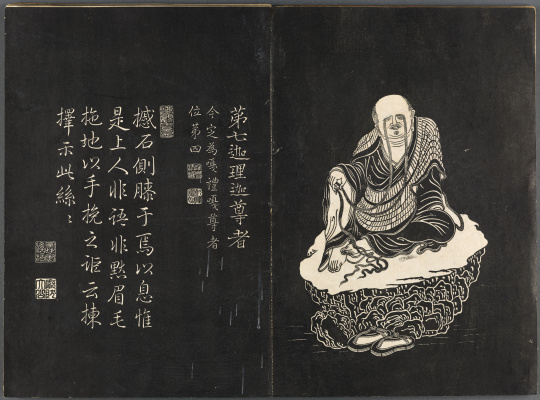 第七迦理迦尊者
今定為嘎禮嘎尊者
位第四
撼石側膝于焉以息惟
是上人非語非黙眉毛
拖地以手挽之詎云揀
擇示此絲〻